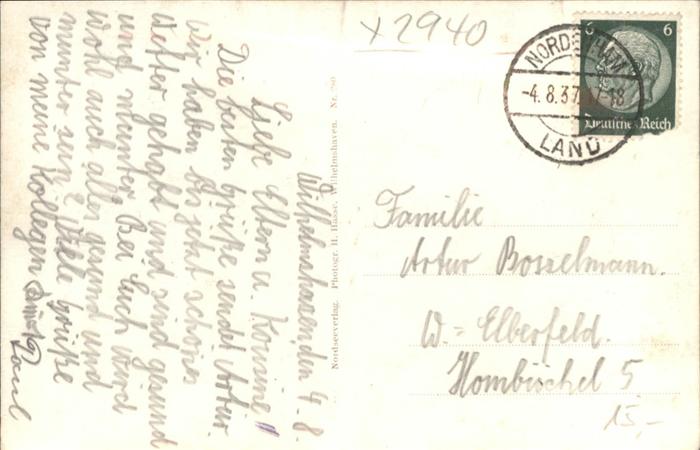 x 2940
6 6
Deutsches Reich
NORDSEHAM
-4.8.37.17-18
LAND
Wilhelmshaven, den 4. 8.
Liebe Eltern u. Kousine!
Die besten Grüße sendet Artur.
Wir haben bis jetzt schönes
Wetter gehabt und sind gesund
und munter. Bei Euch wird
wohl auch alles gesund und
munter sein? Viele Grüße
von meine Kollegen
Paul
Nordseeverlag. Photogr. H. Hasse, Wilhelmshaven. Nr. 290
Familie
Artur Bosselmann.
W.=Elberfeld.
Hombüschel 5
15,-